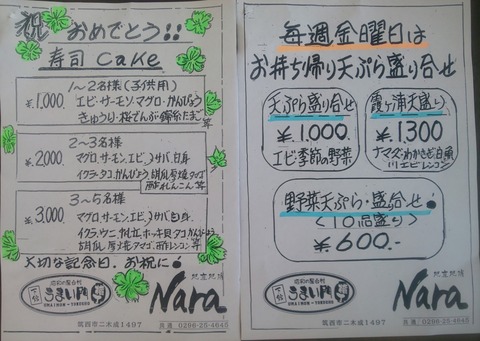 祝 おめでとう!!
寿司 cake
1〜2名様(子供用)
¥1,000
エビ・サーモン・マグロ・かんぴょう
きゅうり・桜でんぶ・錦糸たまご 等
2〜3名様
¥2,000
マグロ、サーモン、エビ、〆サバ、白身
イクラ、タコ、かんぴょう、胡瓜、厚焼タマゴ
酢れんこん 等
3〜5名様
¥3,000
マグロ、サーモン、エビ、〆サバ、白身、
イクラ、ウニ、カニ、ホッキ貝、タコ、かんぴょう
胡瓜、厚焼タマゴ、酢レンコン 等
大切な記念日、お祝に!
下館
昭和の屋台村
うまい門
Nara
筑西市二木成1497
見退 0296-25-4645
毎週金曜日は
お持ち帰り天ぷら盛り合せ
天ぷら盛り合せ
¥1,000
エビ季節の野菜
霞ヶ浦天盛り
¥1,300
ナマズ・わかさぎ・白魚
川エビ・レンコン
野菜天ぷら・盛合せ
〈10品盛り〉
¥600-
下館
昭和の屋台村
うまい門
Nara
筑西市二木成1497
0296-25-4645